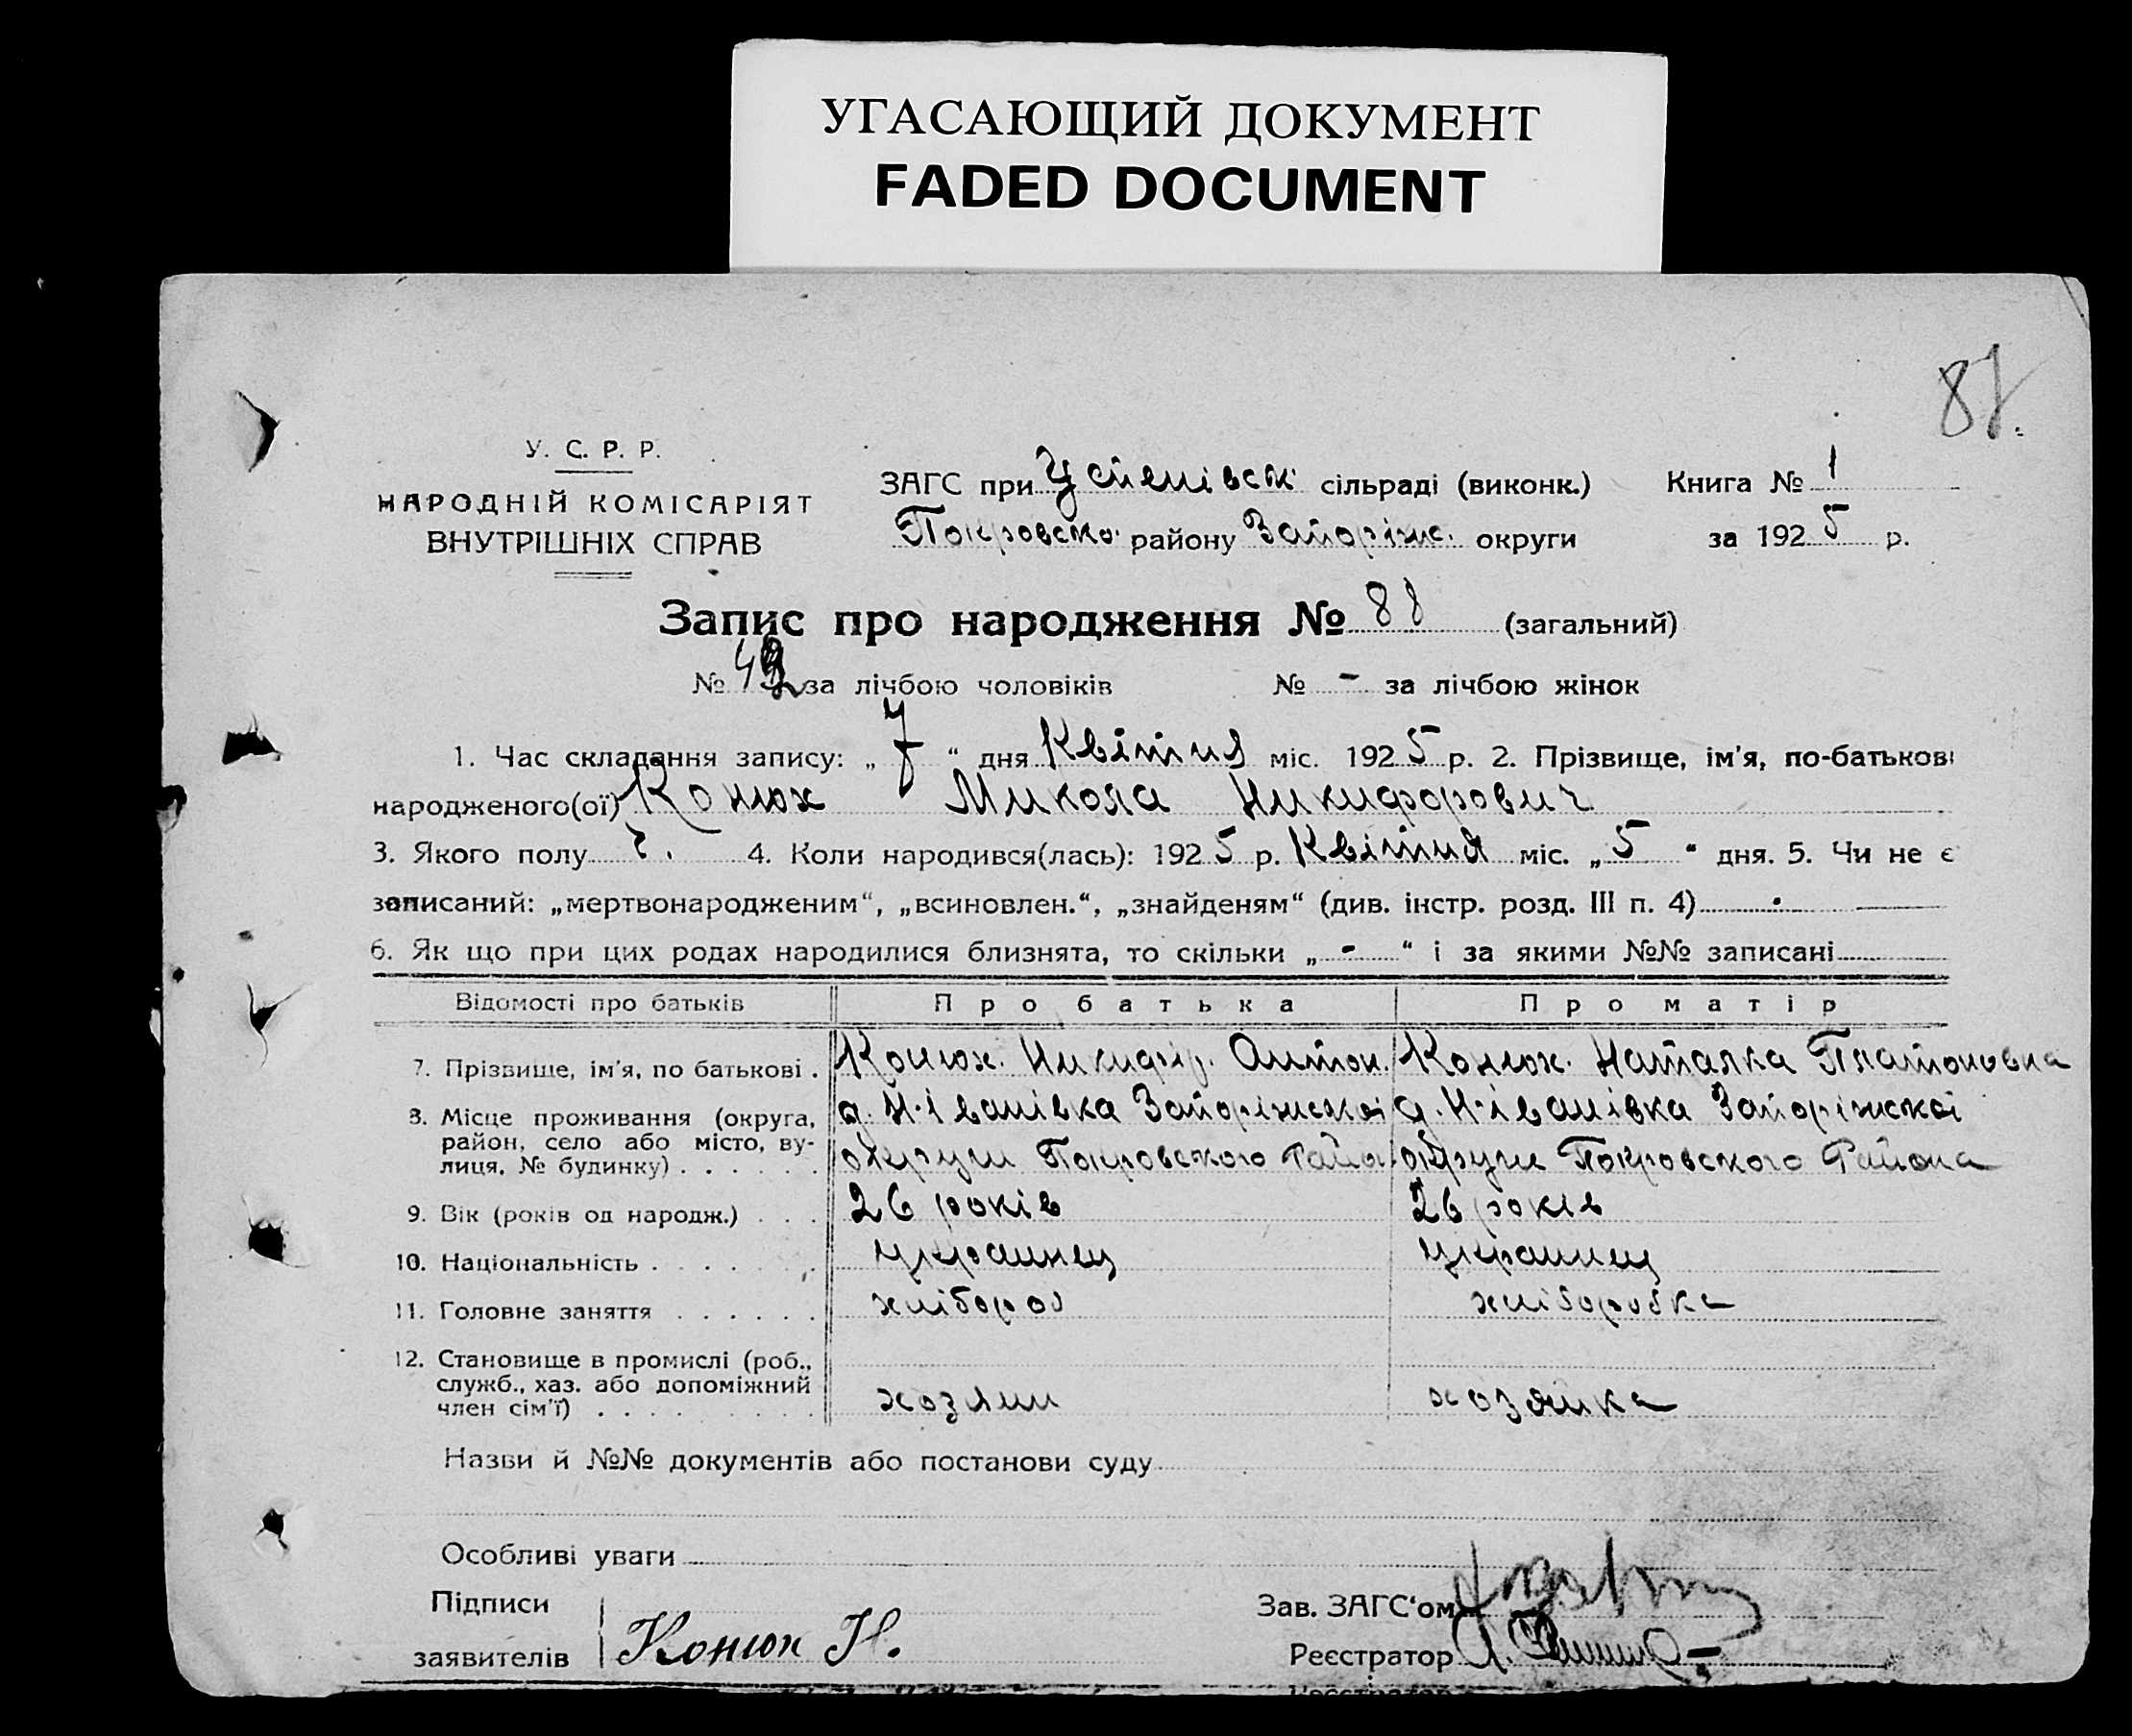 УГАСАЮЩИЙ ДОКУМЕНТ
FADED DOCUMENT
87.
У. С. Р. Р.
НАРОДНІЙ КОМІСАРІЯТ
ВНУТРІШНІХ СПРАВ
ЗАГС при Успенівск. сільраді (виконк.) Книга № 1
Покровско. району Запоріж. округи за 1925 р.
Запис про народження № 88 (загальний)
№ за лічбою чоловіків № - за лічбою жінок
1. Час складання запису: „7“ дня Квітня міс. 1925 р. 2. Прізвище, ім'я, по-батькові
народженого(ої) Конюх Микола Никифорович
3. Якого полу ч. 4. Коли народився(лась): 1925 р. Квітня міс. „5“ дня. 5. Чи не є
записаний: „мертвонародженим“, „всиновлен.“, „знайденям“ (див. інстр. розд. III п. 4) -
6. Як що при цих родах народилися близнята, то скільки „-“ і за якими №№ записані
Відомості про батьків Про батька Про матір
7. Прізвище, ім'я, по батькові . Конюх. Никифір. Антон. Конюх. Наталка Платоновна
8. Місце проживання (округа, д. Н-Іванівка Запоріжскоі д. Н-Іванівка Запоріжскоі
район, село або місто, ву-
лиця, № будинку) . . . . . . округи Покровского Райо округи Покровского Района
9. Вік (років од народж.) . . . 26 років 26 років
10. Національність . . . . . . . украинец украинец
11. Головне заняття . . . . . . хлібороб хлiборобка
12. Становище в промислі (роб.,
служб., хаз. або допоміжний
член сім'ї) . . . . . . . . . хозяин хозяйка
Назви й №№ документів або постанови суду
Особливі уваги
Підписи
заявителів Конюх Н.
Зав. ЗАГС‘ом
Реєстратор